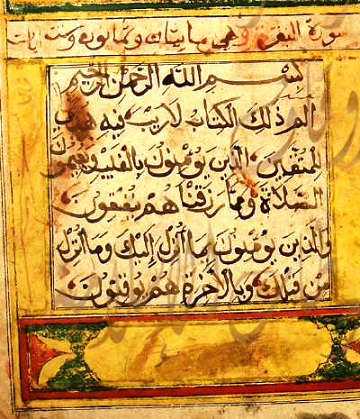 سورة البقرة وهي مايتان وثمانون وست ايات
بسم الله الرحمن الرحيم
الم ذلك الكتاب لا ريب فيه هدى
للمتقين الذين يومنون بالغيب ويقيمون
الصلاة ومما رزقناهم ينفقون
والذين يومنون بما أنزل إليك وما أنزل
من قبلك وبالآخرة هم يوقنون